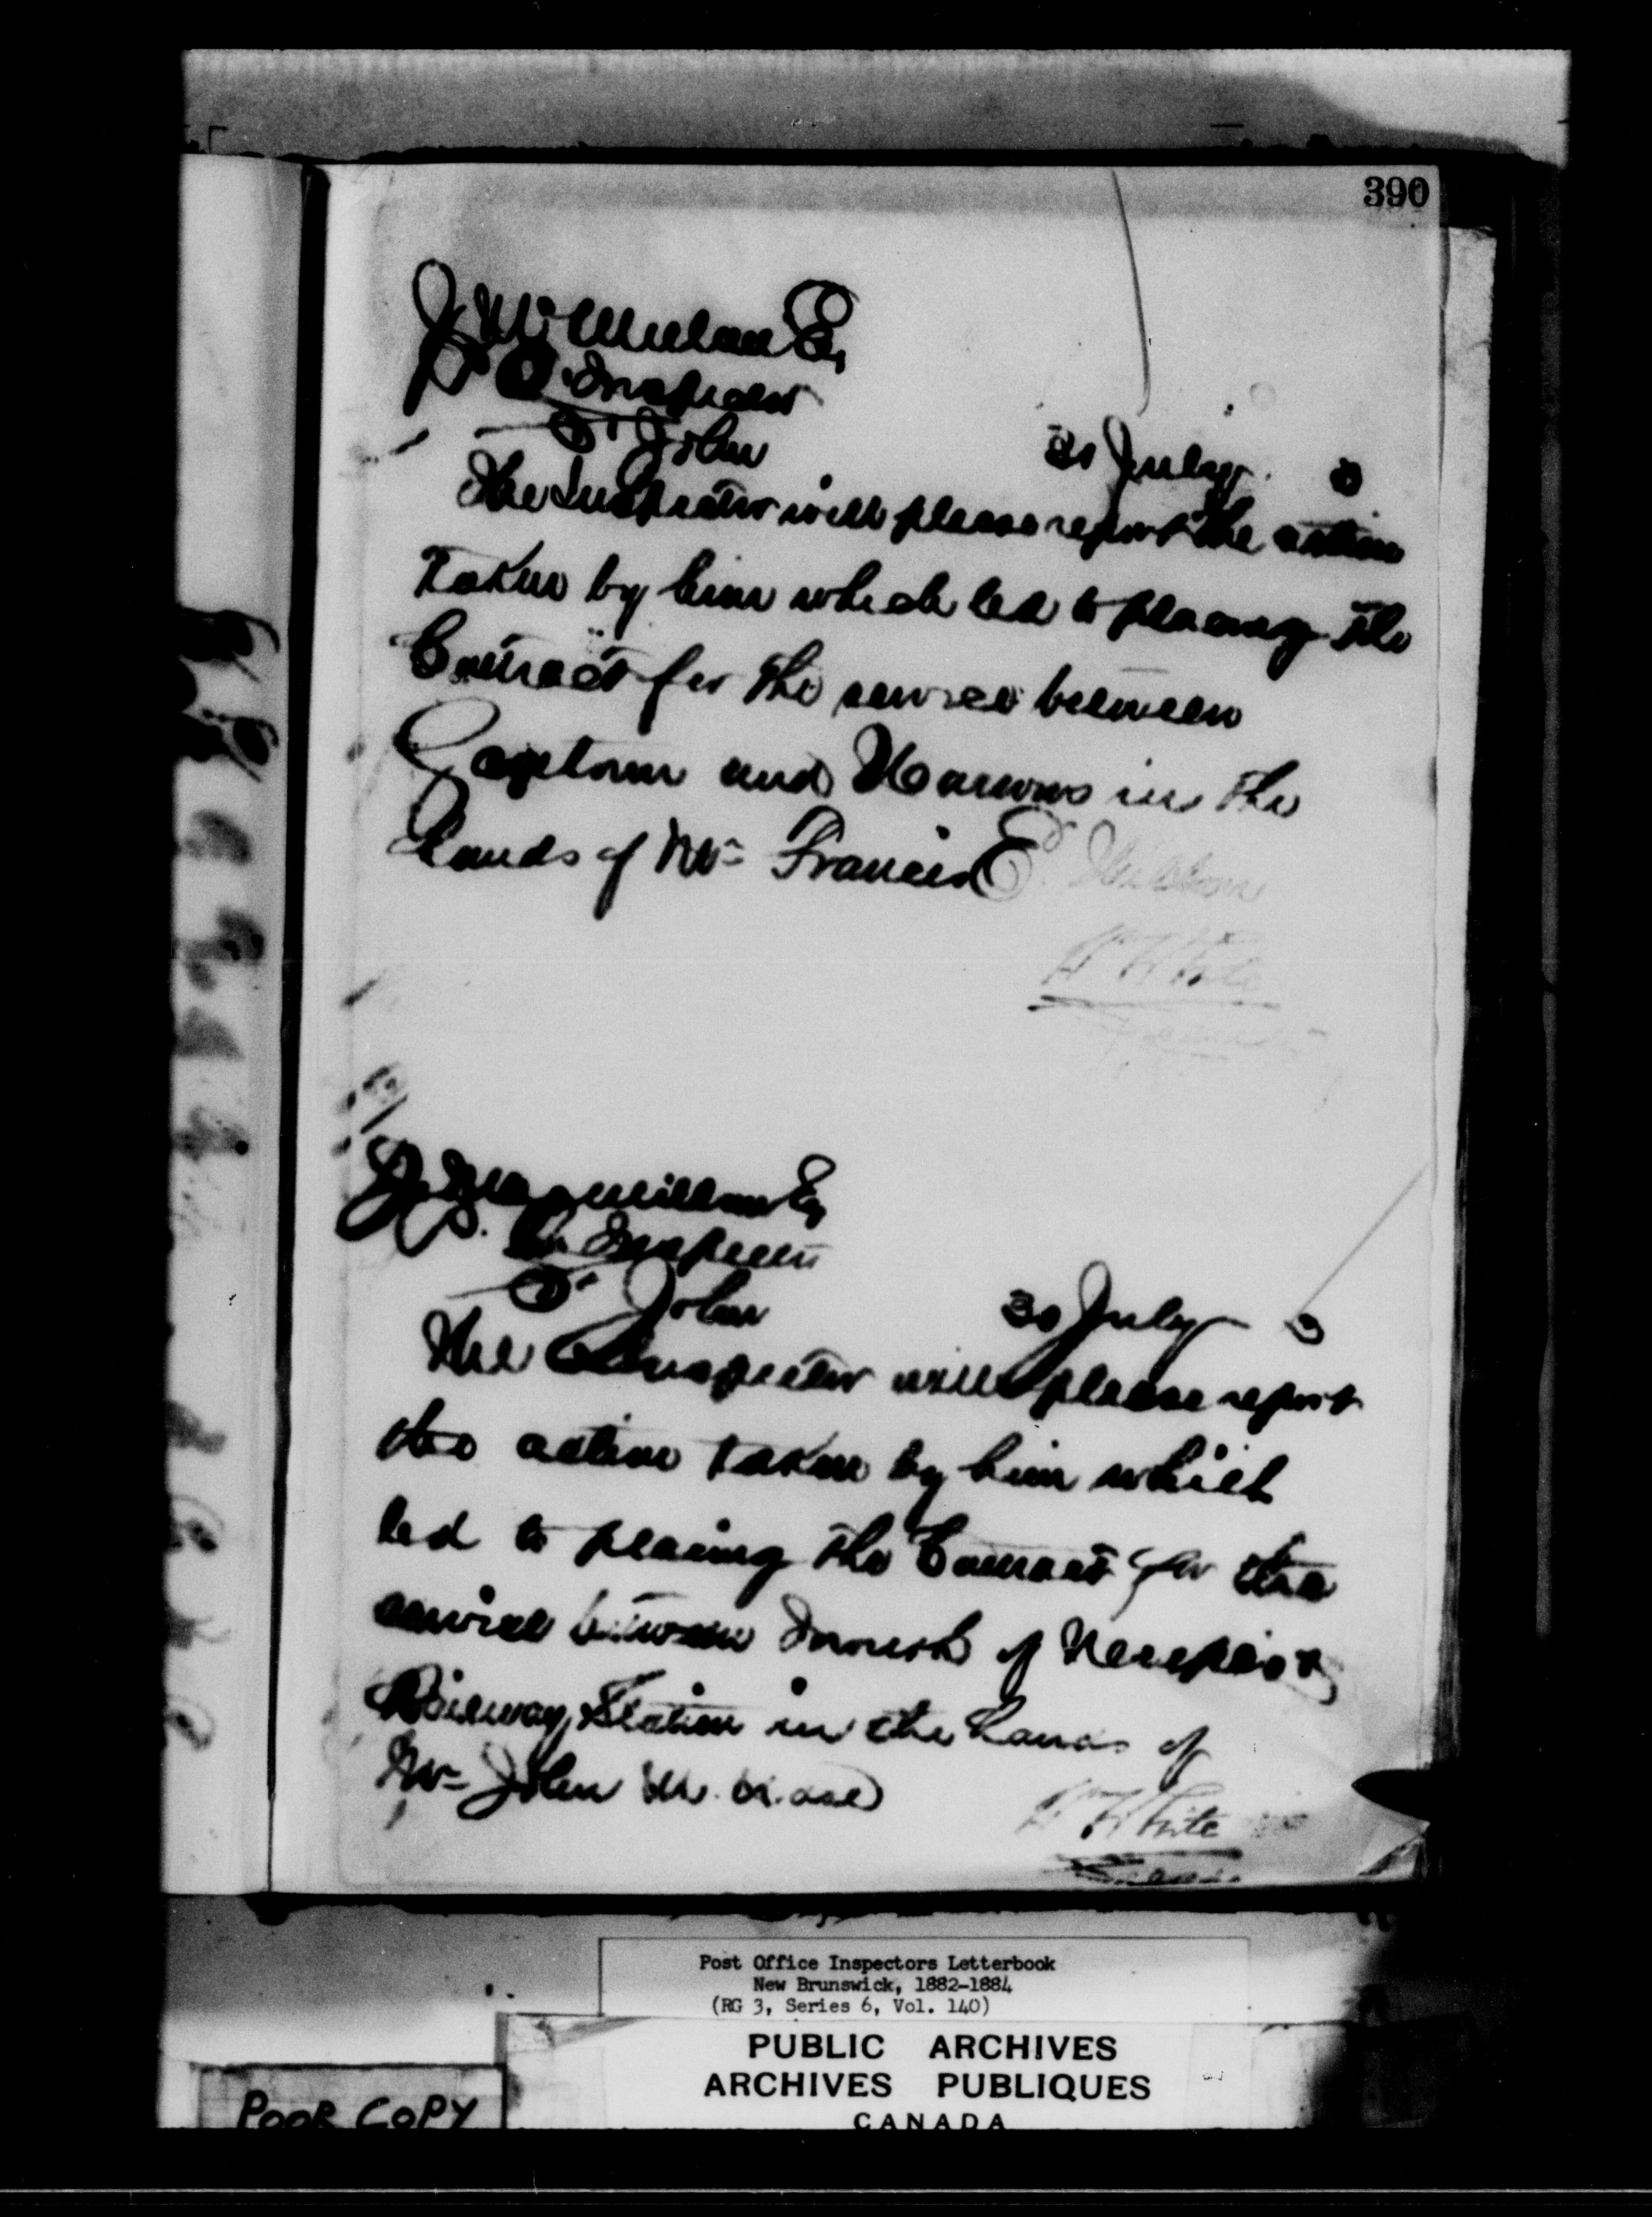 390
J. McMillan Esq
P. O. Inspector
St John
30 July 3
The Inspector will please report the action
taken by him which led to placing the
Contract for the service between
Gagetown and Narrows in the
hands of Mr Francis E.
W White
J. Macmillan Esq
P. O. Inspector
St John
30 July 3
The Inspector will please report
the action taken by him which
led to placing the Contract for the
service between Inch of Nerepis &
Railway Station in the hands of
Mr John M.
W White
Post Office Inspectors Letterbook
New Brunswick, 1882-1884
(RG 3, Series 6, Vol. 140)
PUBLIC ARCHIVES
ARCHIVES PUBLIQUES
CANADA
POOR COPY